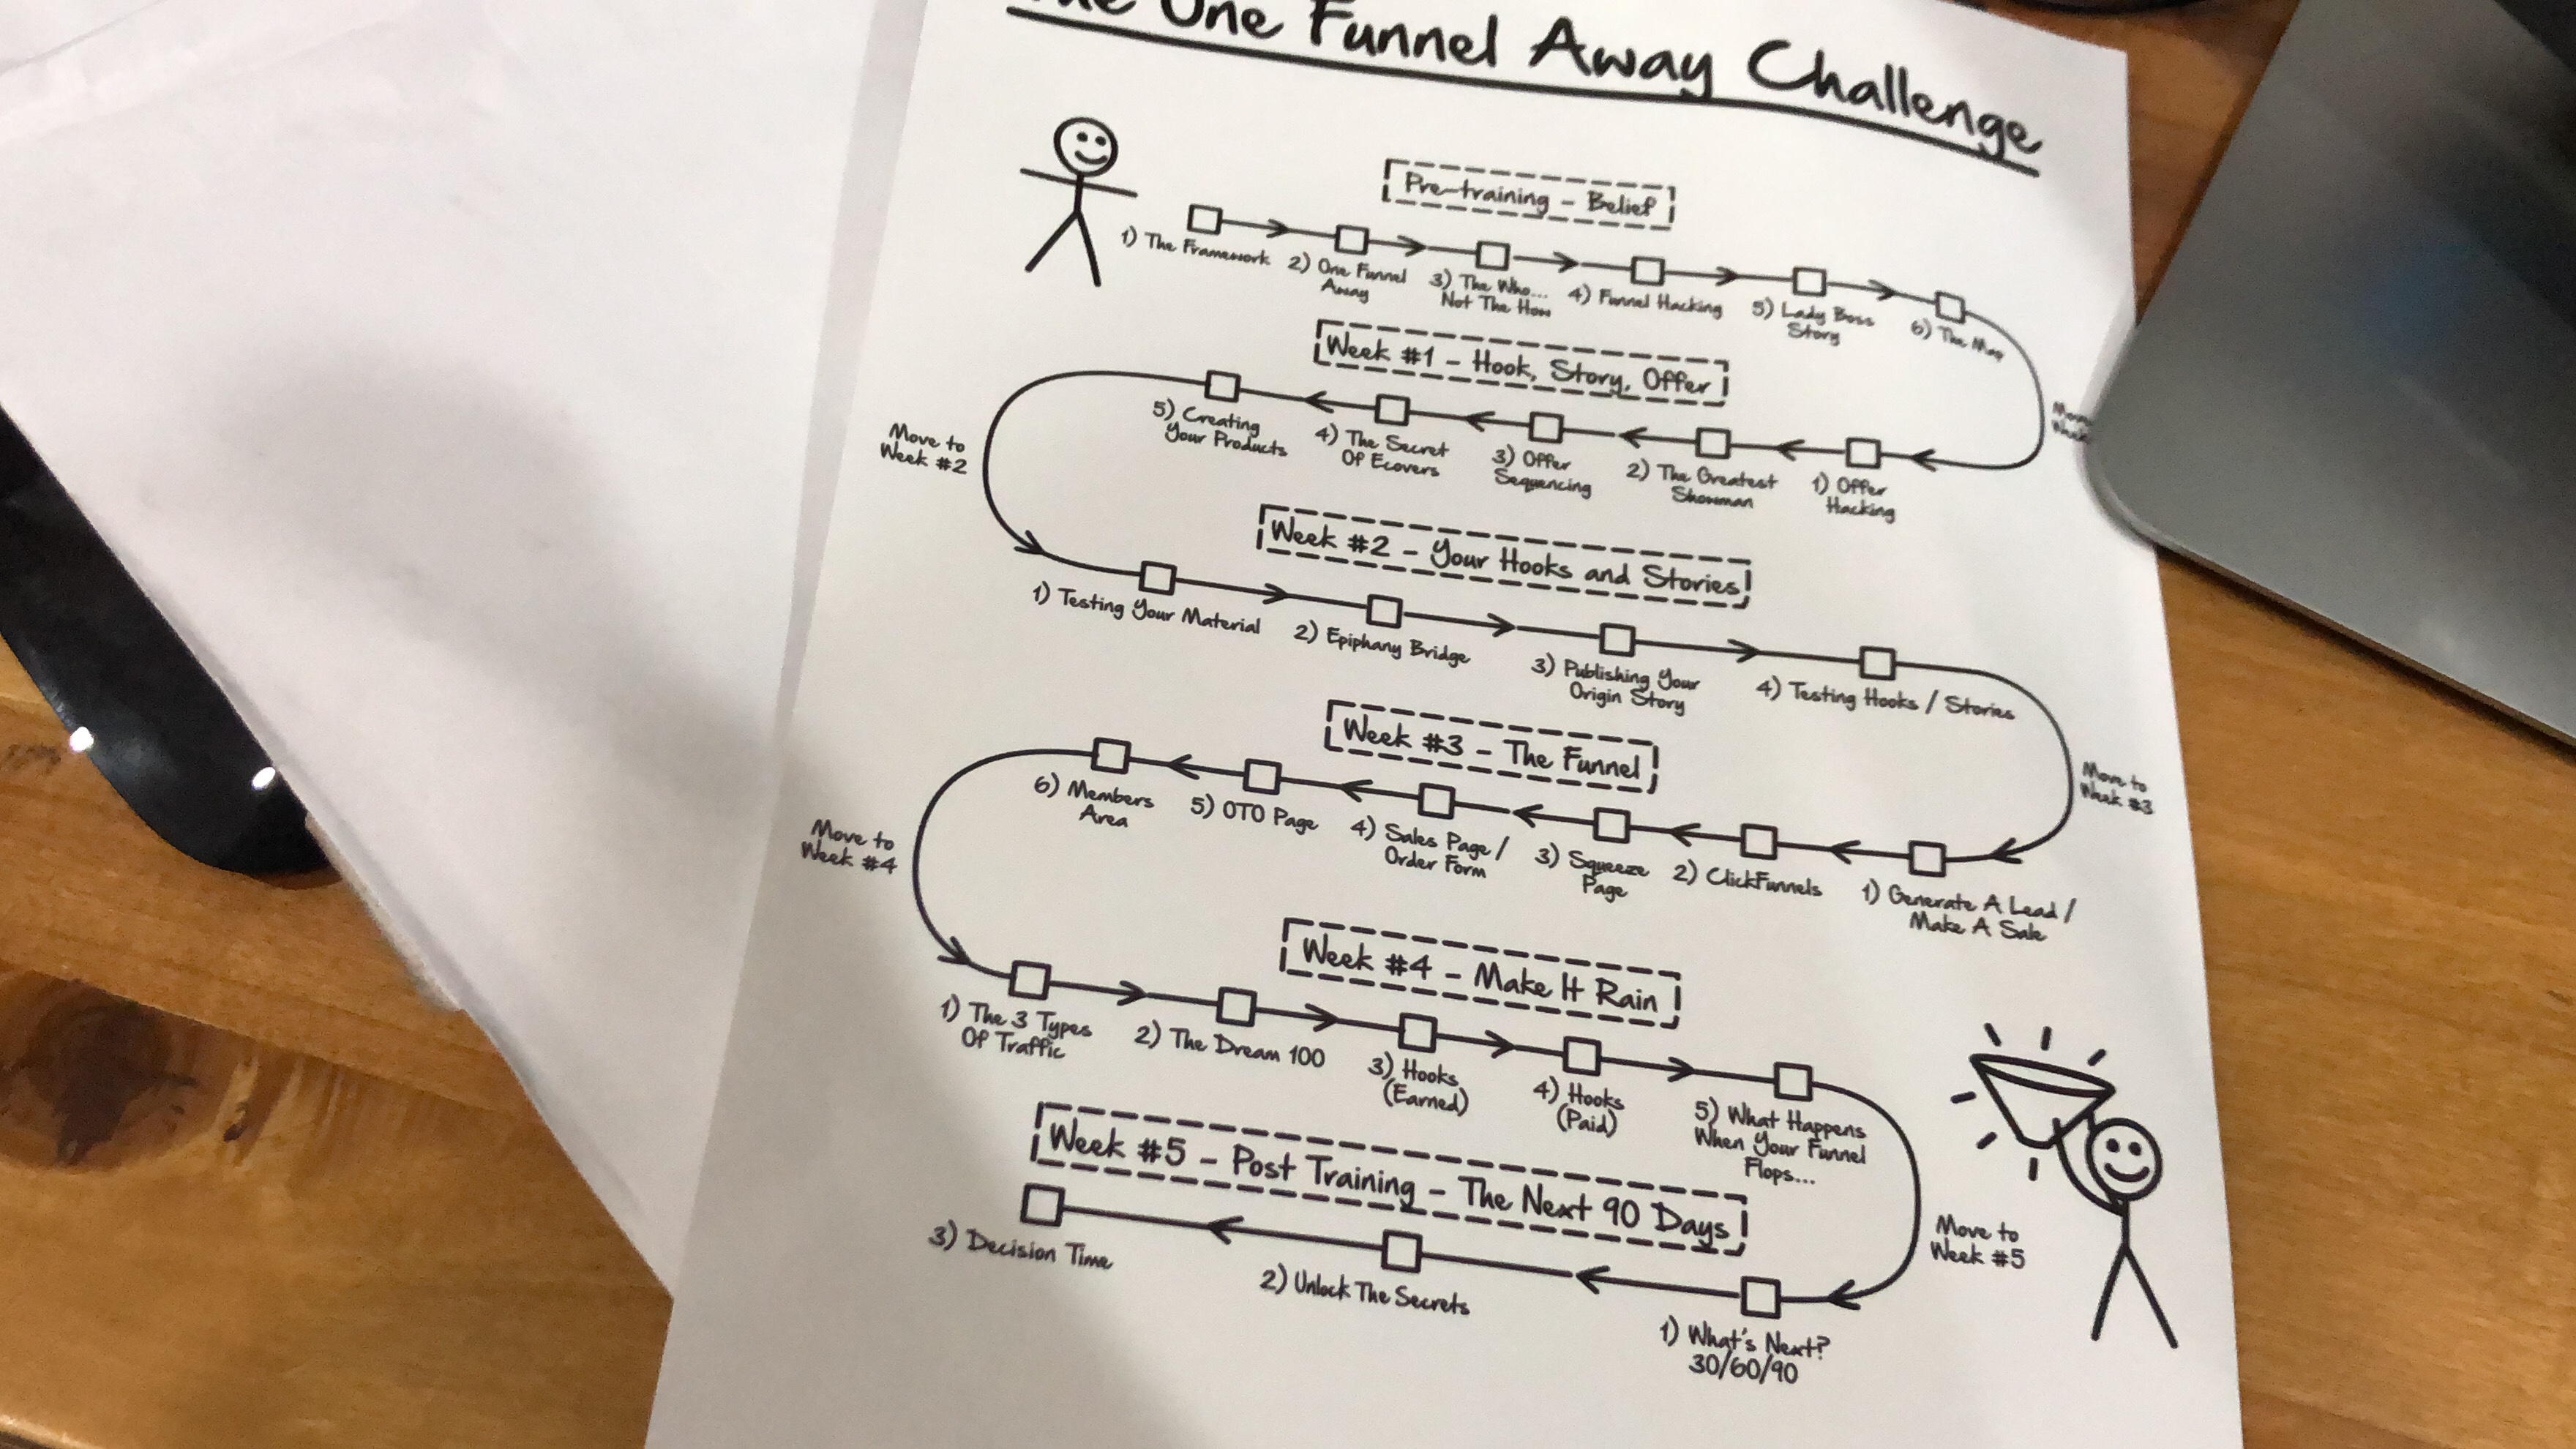 The One Funnel Away Challenge
Pre-training - Belief
1) The Framework
2) One Funnel
Away
3) The Who...
Not The How
4) Funnel Hacking
5) Lady Boss
Story
6) The Map
Move
Week
Week #1 - Hook, Story, Offer
1) Offer
Hacking
2) The Greatest
Showman
3) Offer
Sequencing
4) The Secret
Of Ecovers
5) Creating
Your Products
Move to
Week #2
Week #2 - Your Hooks and Stories
1) Testing Your Material
2) Epiphany Bridge
3) Publishing Your
Origin Story
4) Testing Hooks / Stories
Move to
Week #3
Week #3 - The Funnel
1) Generate A Lead /
Make A Sale
2) ClickFunnels
3) Squeeze
Page
4) Sales Page /
Order Form
5) OTO Page
6) Members
Area
Move to
Week #4
Week #4 - Make It Rain
1) The 3 Types
Of Traffic
2) The Dream 100
3) Hooks
(Earned)
4) Hooks
(Paid)
5) What Happens
When Your Funnel
Flops...
Move to
Week #5
Week #5 - Post Training - The Next 90 Days
1) What's Next?
30/60/90
2) Unlock The Secrets
3) Decision Time